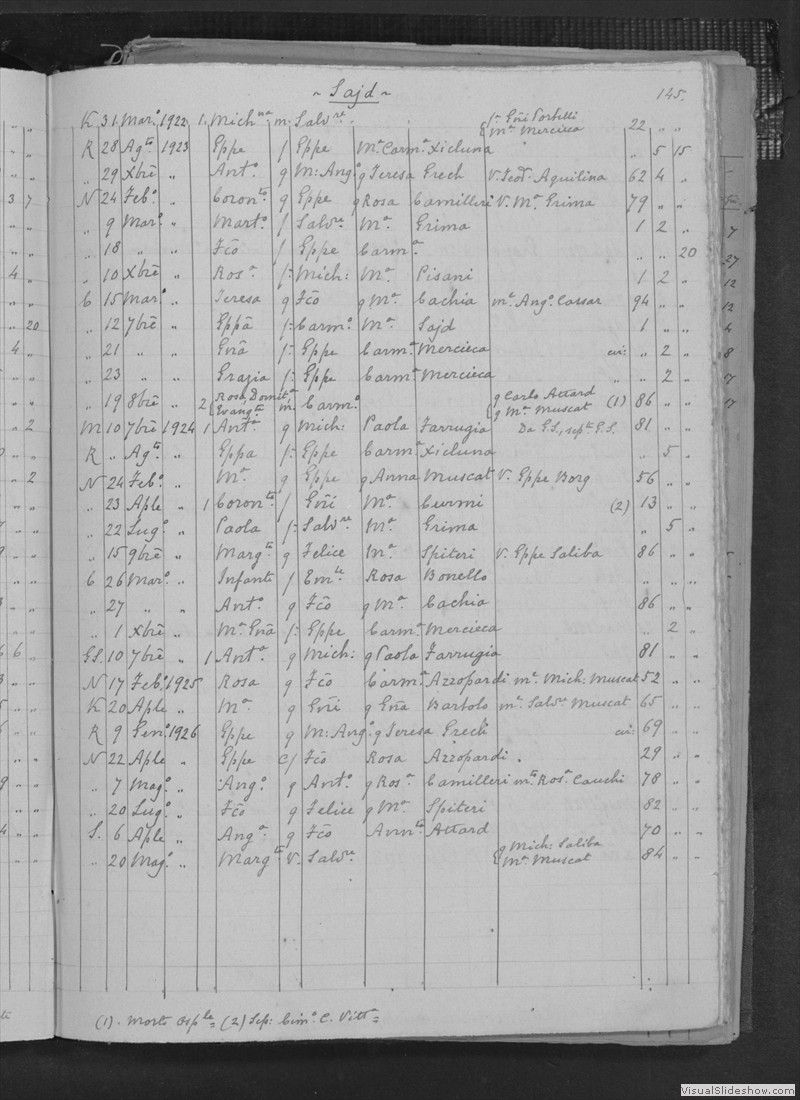 ~ Sajd ~
145.
K 31 Mar.º 1922 1 Mich.na m: Salv.re f:- Gñi Portelli 22 " "
& m.ª Mercieca
R 28 Ag.to 1923 Eppe f Eppe M.ª Carm.ª Xicluna " 5 15
" 29 Xbrē " Ant.º g M: Ang.º g Teresa Grech V. Teod.ª Aquilina 62 4 "
N 24 Feb.º " Coron.to g Eppe g Rosa Camilleri V. M.ª Grima 79 " "
" 9 Mar.º " Mart.º f Salv.re M.ª Grima 1 2 "
" 18 " " Fcō f Eppe Carm.ª " " 20
" 10 Xbrē " Ros.ª f:- Mich: M.ª Pisani 1 2 "
C 15 Mar.º " Teresa g Fcō g M.ª Cachia m.ª Ang.º Cassar 94 " "
" 12 7brē " Eppā f:- Carm.º M.ª Sajd 1 " "
" 21 " " Gñā f:- Eppe Carm.ª Mercieca cir: " 2 "
" 23 " " Grazia f:- Eppe Carm.ª Mercieca " 2 "
" 19 8brē " 2 Rosa, Domit.ª Evang.ta m: Carm.º g Carlo Attard (1) 86 " "
& g M.ª Muscat
M 10 7brē 1924 1 Ant.ª g Mich: Paola Farrugia Da G.S., sep.ta G.S. 81 " "
R " Ag.to " Eppa f:- Eppe Carm.ª Xicluna " 5 "
N 24 Feb.º " M.ª g Eppe g Anna Muscat V. Eppe Borg 56 " "
" 23 Aple " 1 Coron.to f Gñi M.ª Curmi (2) 13 " "
" 22 Lug.º " Paola f:- Salv.re M.ª Grima " 5 "
" 15 9brē " Marg.ta g Felice M.ª Spiteri V. Eppe Saliba 86 " "
C 26 Mar.º " Infante f Em.le Rosa Bonello " " "
" 27 " " Ant.º g Fcō g M.ª Cachia 86 " "
" 1 Xbrē " M.ª Gñā f:- Eppe Carm.ª Mercieca " 2 "
GS. 10 7brē " 1 Ant.ª g Mich: g Paola Farrugia 81 " "
N 17 Feb.º 1925 Rosa g Fcō Carm.ª Azzopardi m.ª Mich: Muscat 52 " "
K 20 Aple " M.ª g Gñi g Gñā Bartolo m.ª Salv.re Muscat 65 " "
R 9 Gen.º 1926 Eppe g M: Ang.º g Teresa Grech cir: 69 " "
N 22 Aple " Eppe c/ Fcō Rosa Azzopardi . 29 " "
" 7 Mag.º " Ang.º g Ant.º g Ros.ª Camilleri m.to Ros.ª Cauchi 78 " "
" 20 Lug.º " Fcō g Felice g M.ª Spiteri 82 " "
S. 6 Aple " Ang.ª g Fcō Ann.ta Attard 70 " "
" 20 Mag.º " Marg.ta V. Salv.re g Mich: Saliba 84 " "
& M.ª Muscat
(1). Morta Osp.le = (2) Sep: Cim.º C. Vitt.ª =
VisualSlideshow.com